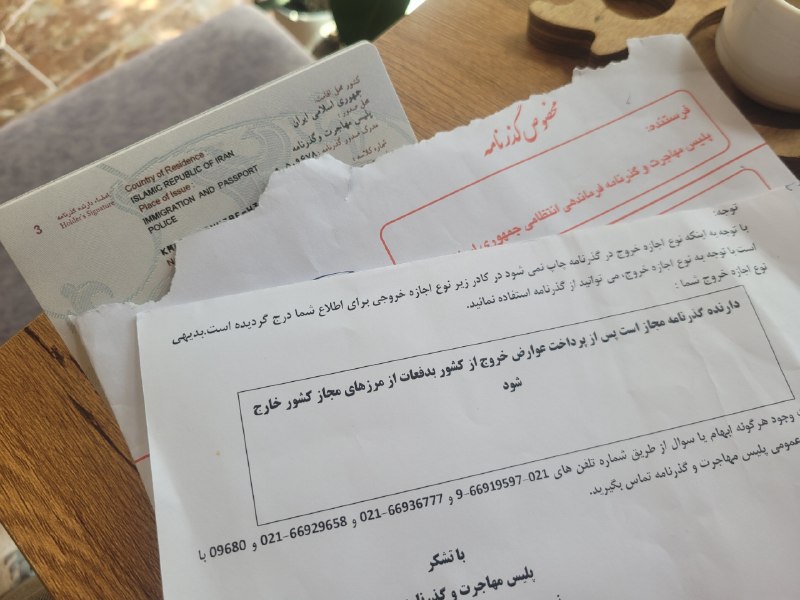 کشور محل اقامت
جمهوری اسلامی ایران
محل صدور:
پلیس مهاجرت و گذرنامه
Country of Residence
ISLAMIC REPUBLIC OF IRAN
Place of Issue
IMMIGRATION AND PASSPORT
POLICE
3
امضاء دارنده گذرنامه
Holder's Signature
مخصوص گذرنامه
فرستنده:
پلیس مهاجرت و گذرنامه فرماندهی انتظامی جمهوری
توجه:
با توجه به اینکه نوع اجازه خروج در گذرنامه چاپ نمی شود در کادر زیر نوع اجازه خروجی برای اطلاع شما درج گردیده است.بدیهی
است با توجه به نوع اجازه خروج، می توانید از گذرنامه استفاده نمائید.
نوع اجازه خروج شما :
دارنده گذرنامه مجاز است پس از پرداخت عوارض خروج از کشور بدفعات از مرزهای مجاز کشور خارج
شود
وجود هرگونه ابهام یا سوال از طریق شماره تلفن های 021-66919597-9 و 66936777-021 و 66929658-021 و 09680 با
عمومی پلیس مهاجرت و گذرنامه تماس بگیرید.
با تشکر
پلیس مهاجرت و گذرنامه